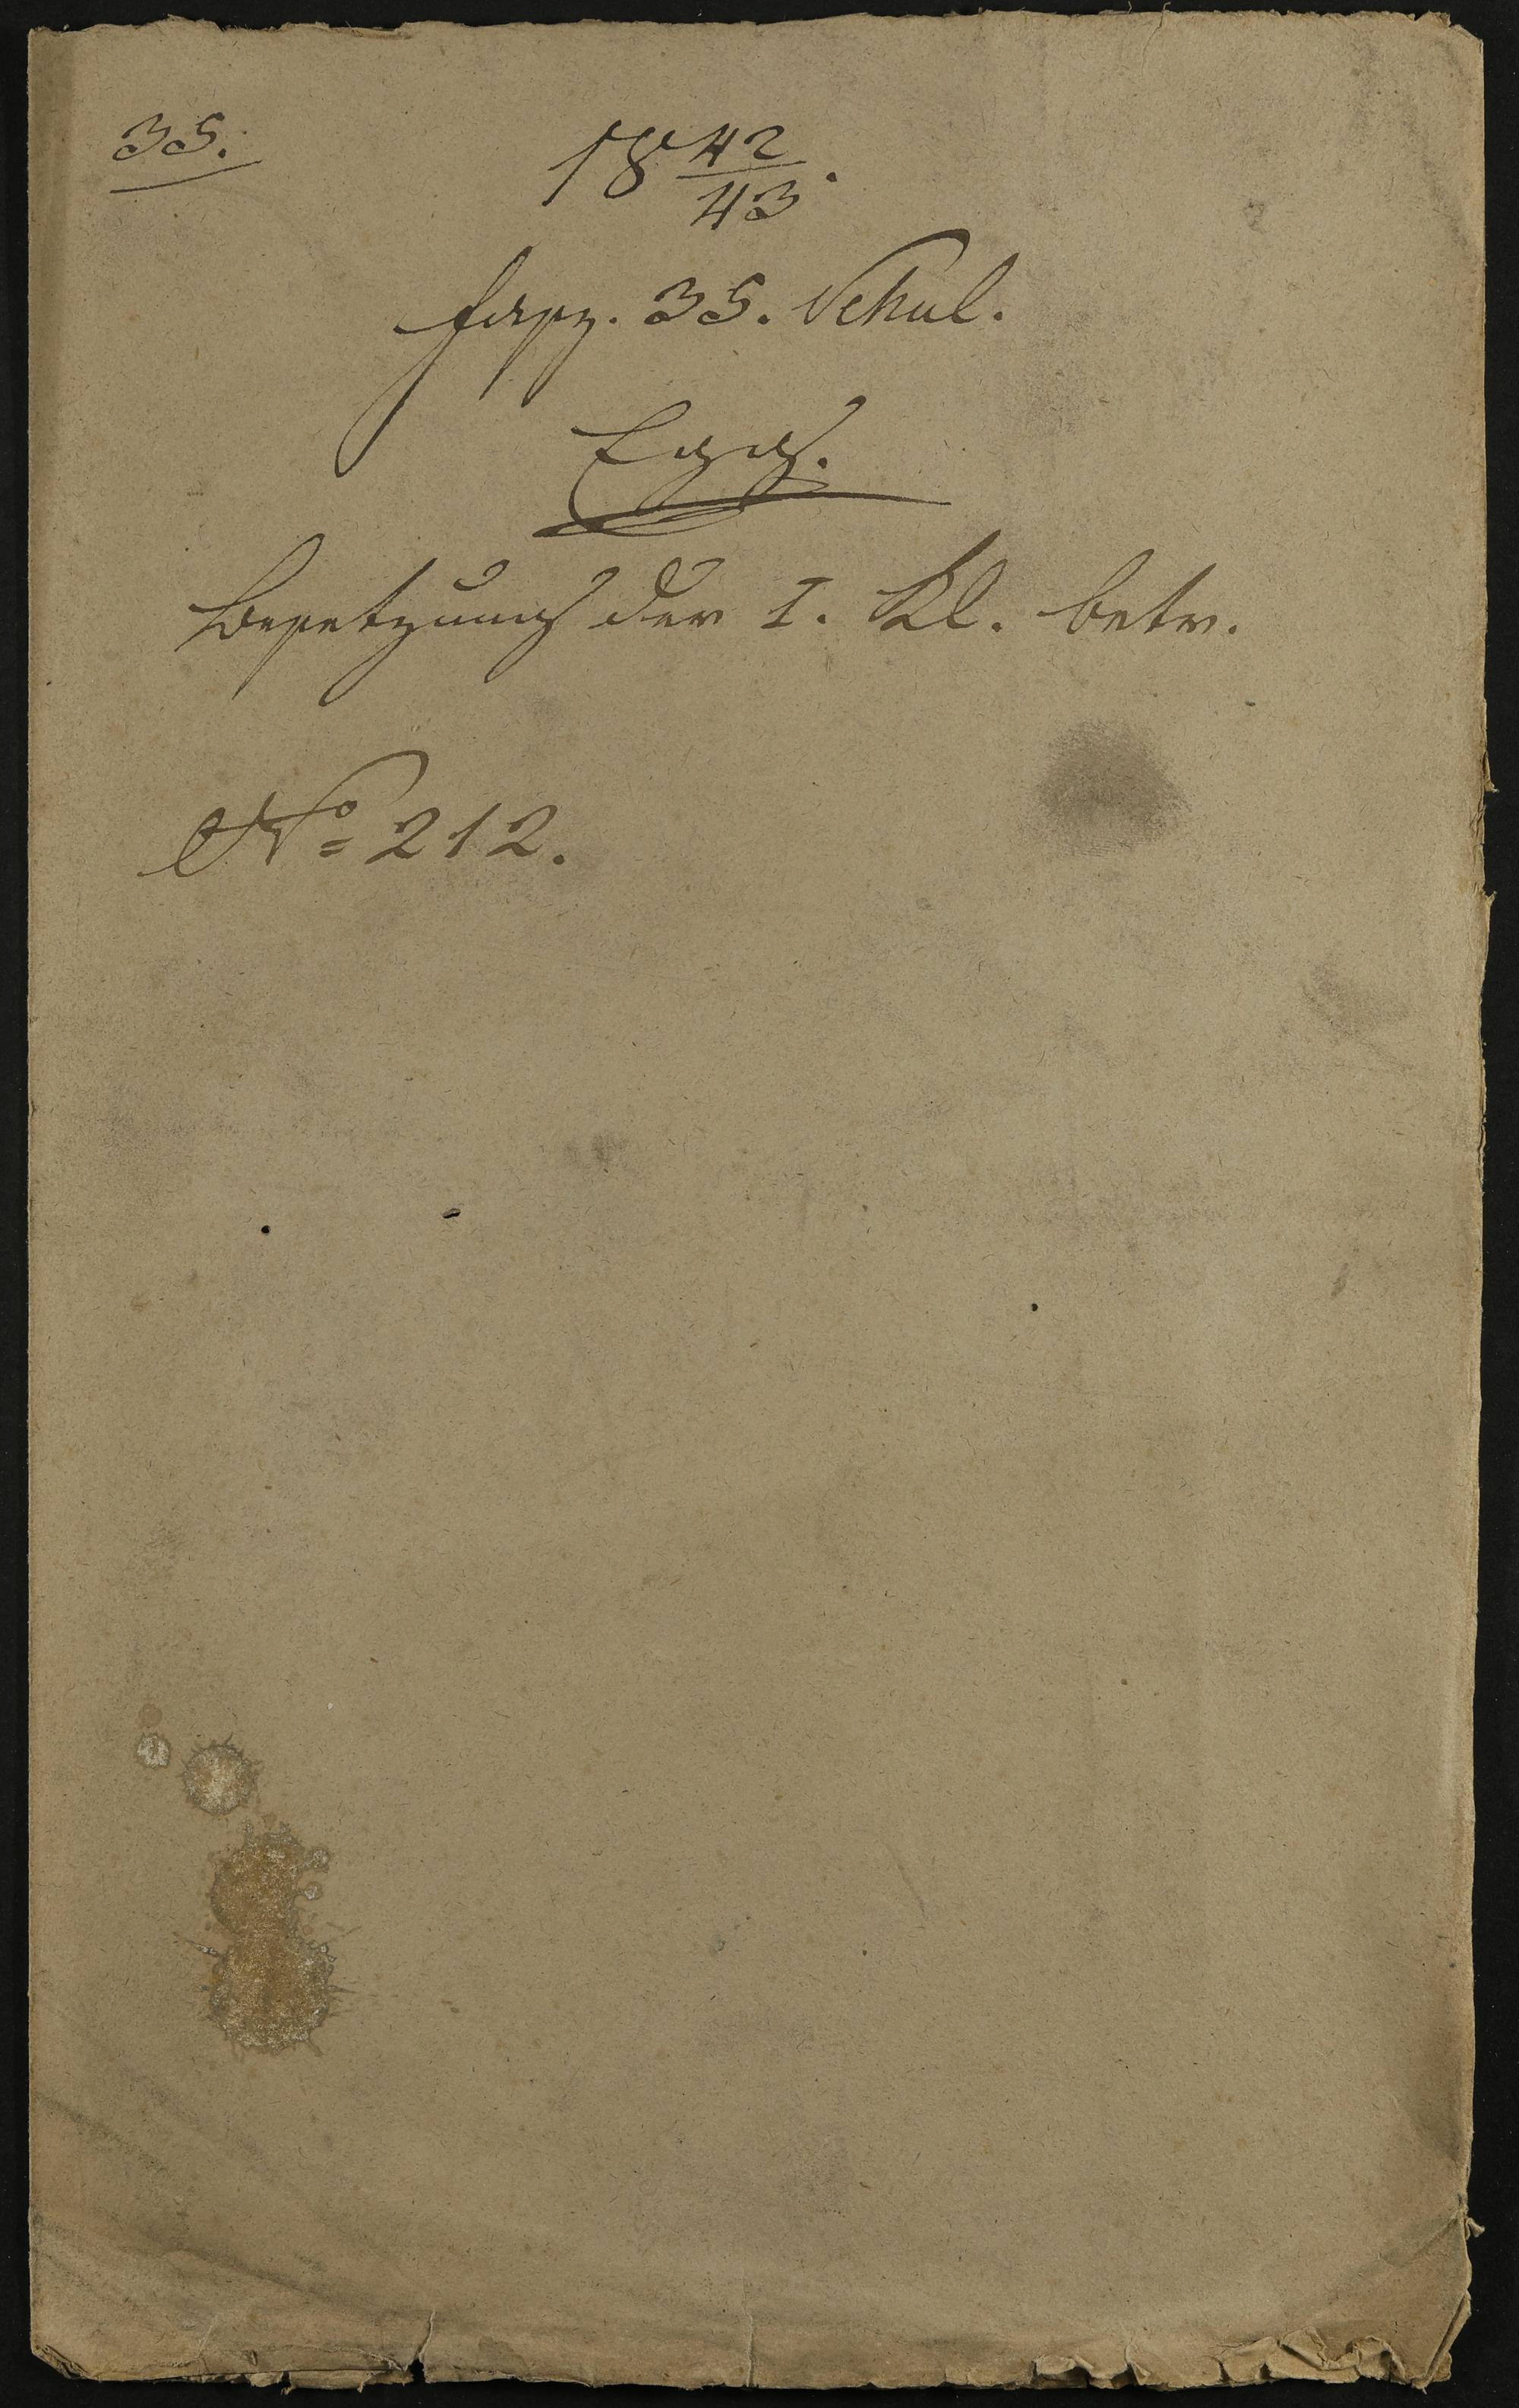 35.
18 42/43.
Fasz. 35. Schul.
Besetzung der I. Kl. betr.
No 212.